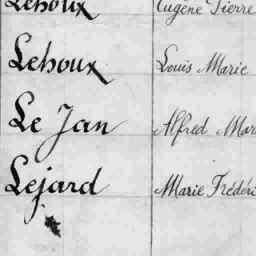 Lehoux Eugène Pierre
Lehoux Louis Marie
Le Jan Alfred
Lejard Marie